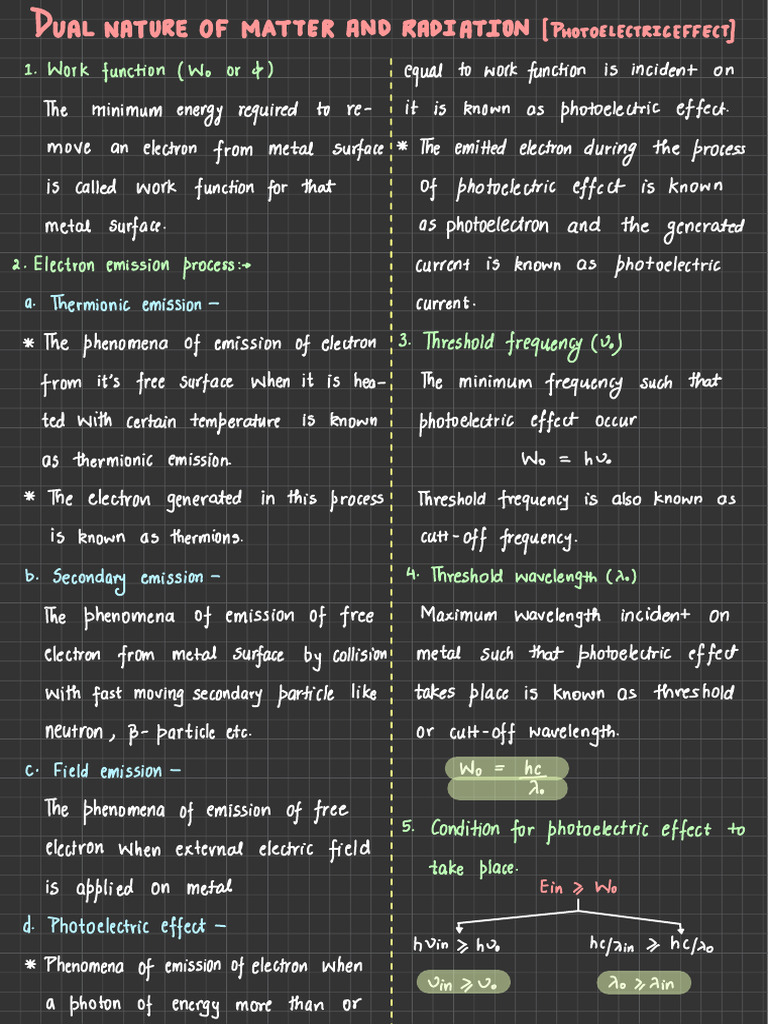 DUAL NATURE OF MATTER AND RADIATION [PHOTOELECTRIC EFFECT]
1. Work function (W₀ or ϕ)
The minimum energy required to re-
move an electron from metal surface
is called work function for that
metal surface.
2. Electron emission process:→
a. Thermionic emission –
* The phenomena of emission of electron
from it's free surface when it is hea-
ted with certain temperature is known
as thermionic emission.
* The electron generated in this process
is known as thermions.
b. Secondary emission –
The phenomena of emission of free
electron from metal surface by collision
with fast moving secondary particle like
neutron, β- particle etc.
c. Field emission –
The phenomena of emission of free
electron when external electric field
is applied on metal
d. Photoelectric effect –
* Phenomena of emission of electron when
a photon of energy more than or
equal to work function is incident on
it is known as photoelectric effect.
* The emitted electron during the process
of photoelectric effect is known
as photoelectron and the generated
current is known as photoelectric
current.
3. Threshold frequency (υ₀)
The minimum frequency such that
photoelectric effect occur
W₀ = hυ₀
Threshold frequency is also known as
cutt-off frequency.
4. Threshold wavelength (λ₀)
Maximum wavelength incident on
metal such that photoelectric effect
takes place is known as threshold
or cutt-off wavelength.
W₀ = hc
λ₀
5. Condition for photoelectric effect to
take place.
Ein ⩾ W₀
hυin ⩾ hυ₀ hc/λin ⩾ hc/λ₀
υin ⩾ υ₀ λ₀ ⩾ λin